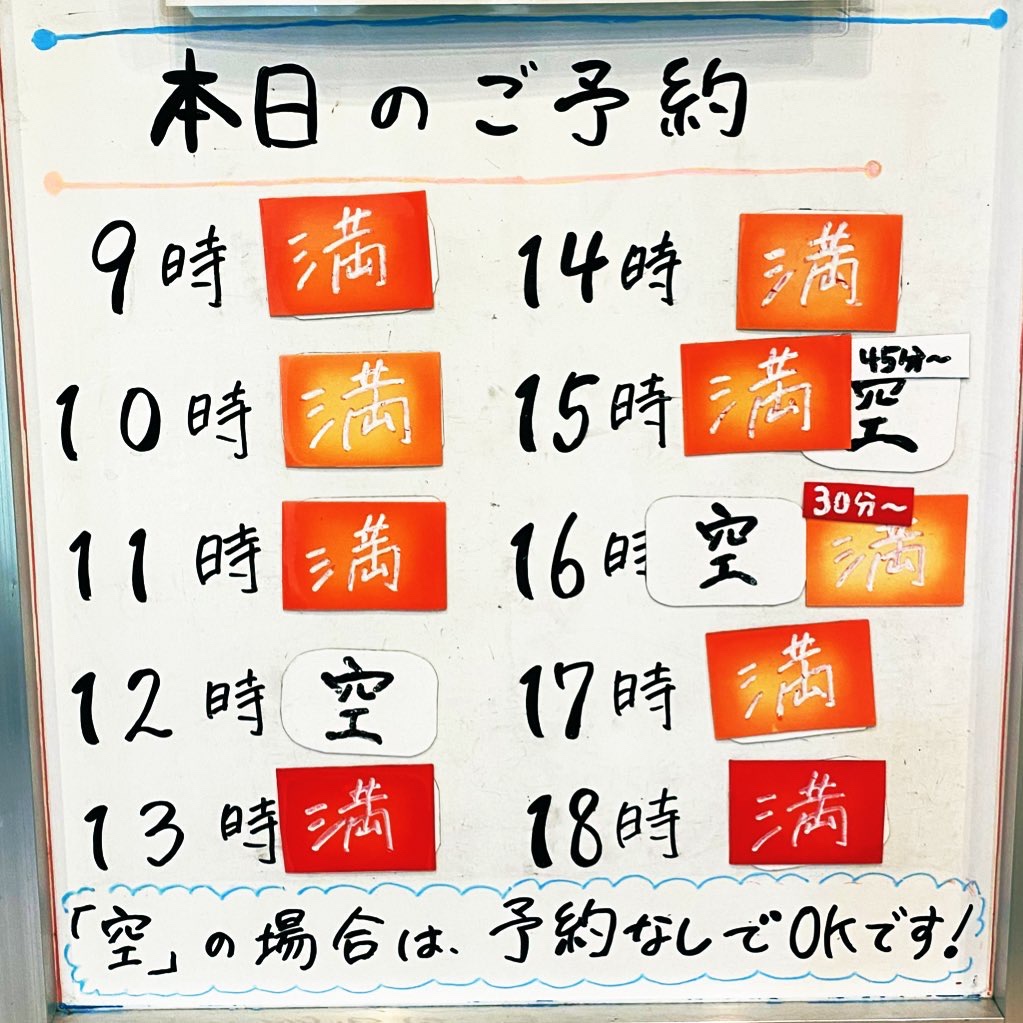 本日のご予約
9時 満
10時 満
11時 満
12時 空
13時 満
14時 満
15時 満 45分~ 空
16時 空 30分~ 満
17時 満
18時 満
「空」の場合は、予約なしでOKです!